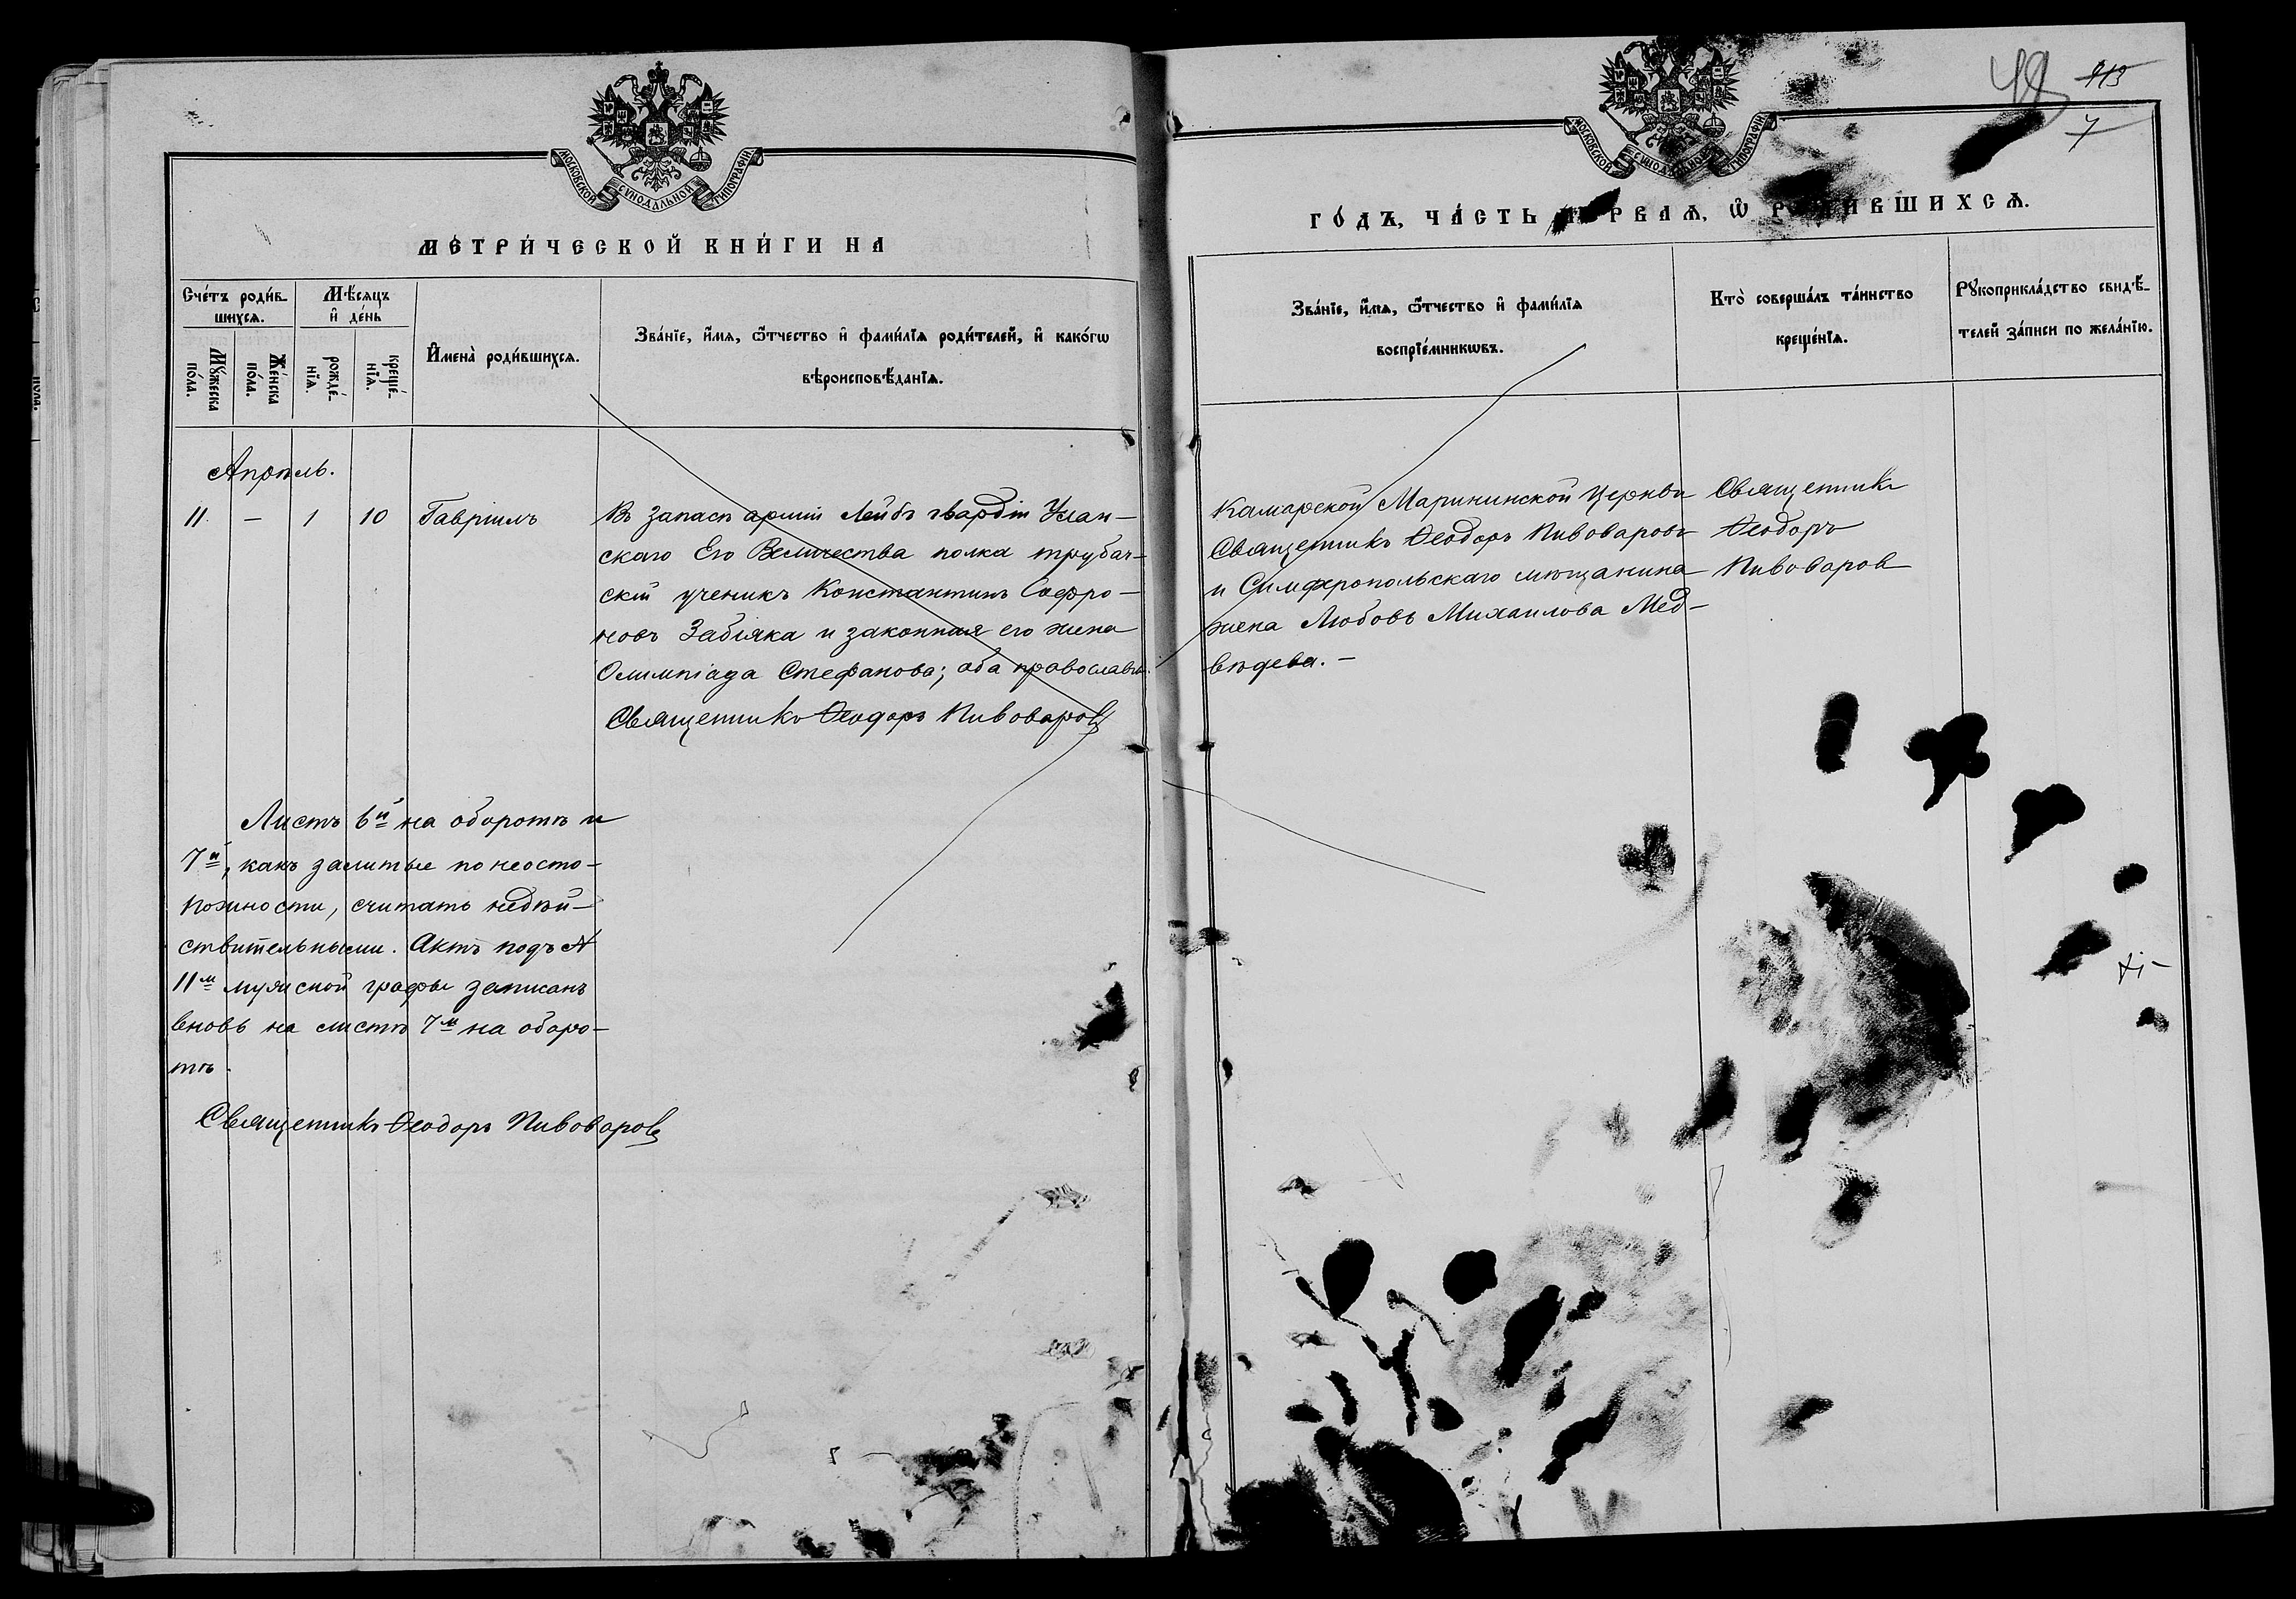 МОСКОВСКОЙ СѴНОДАЛЬНОЙ ТИПОГРАФІИ
МЕТРИ́ЧЕСКОЙ КНИ́ГИ НА
Сче́тъ роди́в-
шихсѧ.
Мѣ́сѧцъ
и҆ де́нь
Мꙋ́жеска
по́ла.
Же́нска
по́ла.
рожде́-
нїѧ.
креще́-
нїѧ.
И҆мена̀ роди́вшихсѧ.
Зва́нїе, и҆́мѧ, ѻ҆́тчество и҆ фами́лїѧ роди́телей, и҆ како́гѡ
вѣроисповѣ́данїѧ.
Апрѣль.
11. — 1 10 Гавріилъ
Въ запасѣ арміи Лейбъ гвардіи Улан-
скаго Его Величества полка трубач-
скій ученикъ Константинъ Софро-
новъ Забіяка и законная его жена
Олимпіада Стефанова; оба православн.
Священникъ Ѳеодоръ Пивоваровъ
Листъ 6й на оборотѣ и
7й, какъ залитые по неосто-
рожности, считать недѣй-
ствительными. Актъ подъ №
11м мужской графы записанъ
вновь на листѣ 7м на оборо-
тѣ.
Священникъ Ѳеодоръ Пивоваровъ
48 113
7
МОСКОВСКОЙ СѴНОДАЛЬНОЙ ТИПОГРАФІИ
ГО́ДЪ, ЧА́СТЬ ПЕ́РВАѦ, Ѡ҆ РОДИ́ВШИХСѦ.
Зва́нїе, и҆́мѧ, ѻ҆́тчество и҆ фами́лїѧ
воспрїе́мникѡвъ.
Кто̀ соверша́лъ та́инство
креще́нїѧ.
Рꙋкоприкла́дство свидѣ́-
телей за́писи по жела́нїю.
Камарской Марининской церкви
Священникъ Ѳеодоръ Пивоваровъ
и Симферопольскаго мѣщанина
жена Любовь Михаилова Мед-
вѣдева. —
Священникъ
Ѳеодоръ
Пивоваров